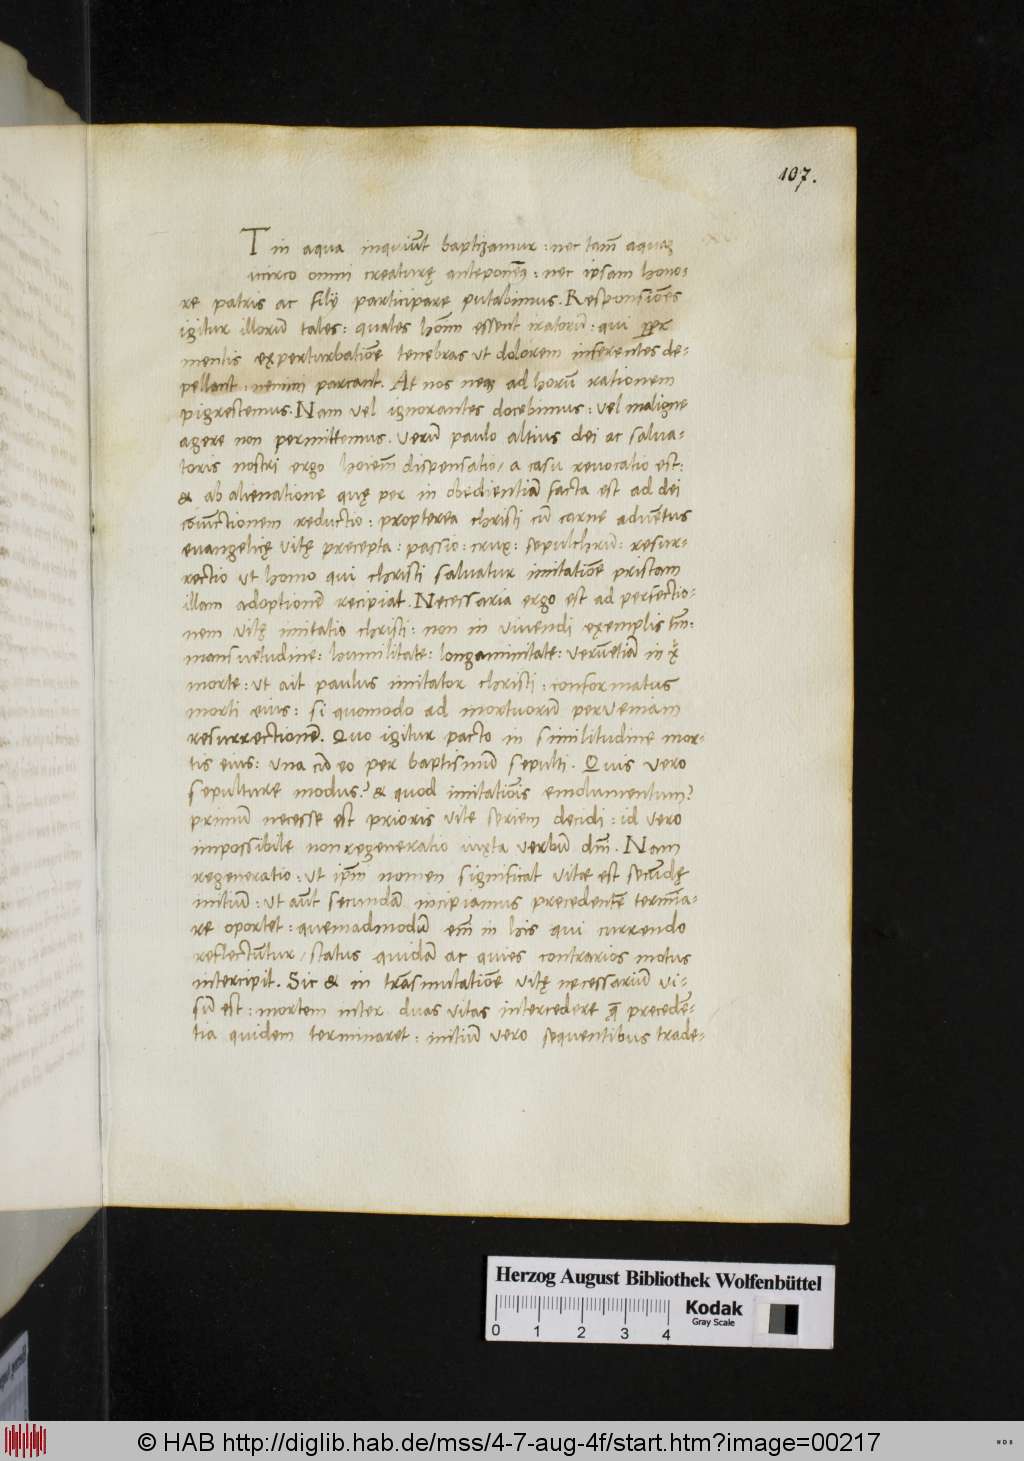 107.
T in aqua inquiūt baptizamur : nec tam̄ aquaꝫ
ucirco omni creaturę anteponem̄9 : nec ipsam hono-
re patris ac filij participare putabimus. Responsiōes
igitur illorū tales : quales hoīm essent iratorū : qui per
mentis experturbatiōe tenebras ut dolorem inferentes de-
pellant : nemini parcant. At nos neqꝫ ad horū rationem
pigrescemus. Nam vel ignorantes docebimus : vel maligne
agere non permittemus. Verū paulo altius dei ac salua-
toris nostri ergo hoiem̄ dispensatio / a casu reuocatio est :
& ab alienatione quę per in obedientiā facta est ad dei
cōiūctionem reductio : propterea christi cū carne aduētus
euangelicę vitę precepta : passio : crux : sepulchrū : resur-
rectio ut homo qui christi saluatur imitatiōe pristam
illam adoptionē recipiat. Necessaria ergo est ad perfectio-
nem vitę imitatio christi : non in viuendi exemplis tm̄ :
mansuetudine : humilitate : longaminitate : verūetiā in x̄p̄i
morte : ut ait paulus imitator christi : conformatus
morti eius : si quomodo ad mortuorū perveniam
resurrectionē. Quo igitur pacto in similitudine mor-
tis eius : una cū eo per baptismū sepulti. Quis vero
sepulture modus? & quod imitatiōis emolumentum?
primū necesse est prioris vite seriem decidi : id vero
impossibile non regeneratio iuxta verbū dm̄. Nam
regeneratio : ut ip̄m nomen significat vitæ est secūdę
initiū : ut aūt secundā incipiamus precedentē termīa-
re oportet : quemadmodū em̄ in his qui currendo
reflectūtur / status quidā ac quies contrarios motus
intercipit. Sic & in trāsmutatiōe vitę necessariū vi-
sū est : mortem inter duas vitas intercedere q̄ precedē-
tia quidem terminaret : initiū vero sequentibus trade-
Herzog August Bibliothek Wolfenbüttel
0 1 2 3 4
Kodak
Gray Scale
© HAB http://diglib.hab.de/mss/4-7-aug-4f/start.htm?image=00217